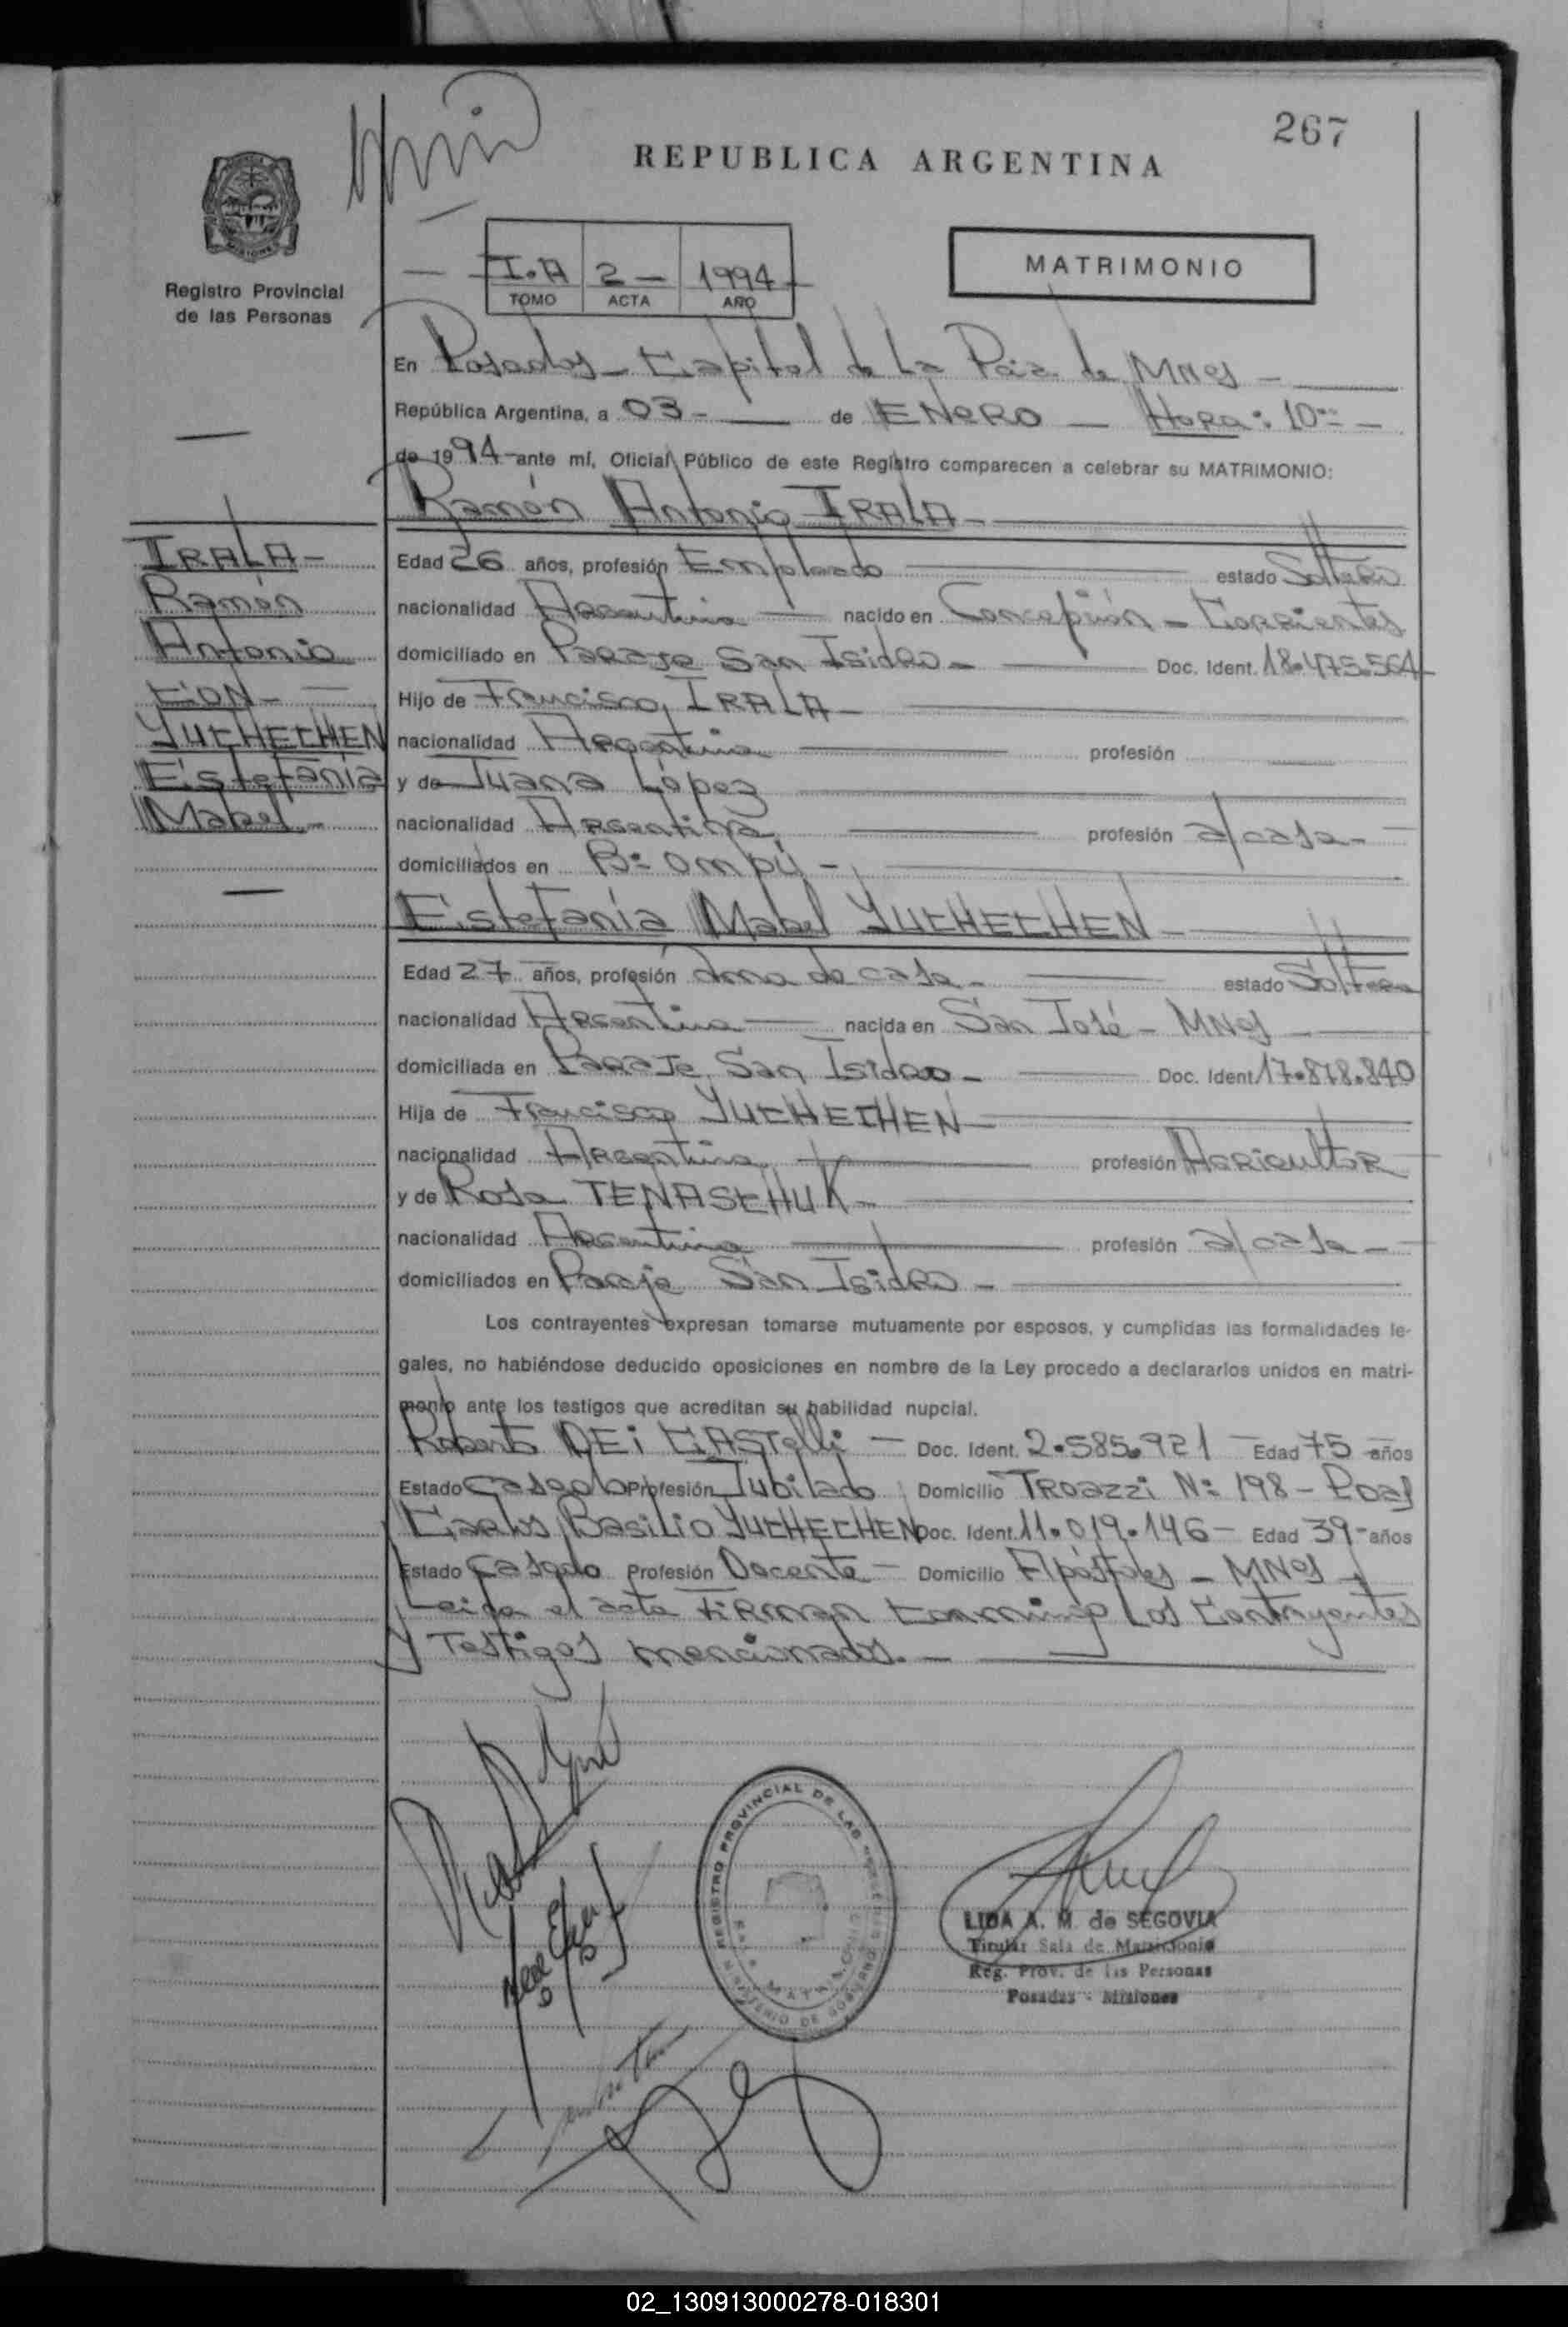 267
REPUBLICA ARGENTINA
Registro Provincial
de las Personas
I.A 2- 1994-
TOMO ACTA AÑO
MATRIMONIO
En Posadas - Capital de La Pcia. de MNes -
República Argentina, a 03- de ENERO - HORA: 10=
de 1994-ante mí, Oficial Público de este Registro comparecen a celebrar su MATRIMONIO:
Ramón Antonio IRALA-
IRALA-
Ramón
Antonio
CON-
YUCHECHEN
Estefanía
Mabel-
Edad 26 años, profesión Empleado estado Soltero
nacionalidad Argentina nacido en Concepción - Corrientes
domiciliado en Paraje San Isidro- Doc. Ident. 18.475.564-
Hijo de Francisco IRALA-
nacionalidad Argentina profesión
y de Juana López
nacionalidad Argentina profesión a/casa-
domiciliados en B= Ompú -
Estefanía Mabel YUCHECHEN-
Edad 27 años, profesión Ama de casa- estado Soltera
nacionalidad Argentina nacida en San José - MNes
domiciliada en Paraje San Isidro- Doc. Ident 17.878.840
Hija de Francisco YUCHECHEN
nacionalidad Argentina profesión Agricultor
y de Rosa TENASCHUK-
nacionalidad Argentina profesión a/casa-
domiciliados en Paraje San Isidro -
Los contrayentes expresan tomarse mutuamente por esposos, y cumplidas las formalidades le-
gales, no habiéndose deducido oposiciones en nombre de la Ley procedo a declararlos unidos en matri-
monio ante los testigos que acreditan su habilidad nupcial.
Roberto DEi CASTelli - Doc. Ident. 2.585.921 Edad 75 años
Estado Casado Profesión Jubilado Domicilio TROAZZi N= 198 - Pdas
Carlos Basilio YUCHECHEN Doc. Ident. 11.019.146- Edad 39-años
Estado Casado Profesión Docente- Domicilio Apóstoles - MNes
Leida el acta Firman conmigo Los Contrayentes
y Testigos mencionados.-
REGISTRO PROVINCIAL DE LAS PERSONAS
MINISTERIO DE GOBIERNO
SALA MATRIMONIO
LIDA A. M. de SEGOVIA
Titular Sala de Matrimonio
Reg. Prov. de las Personas
Posadas - Misiones
02_130913000278-018301